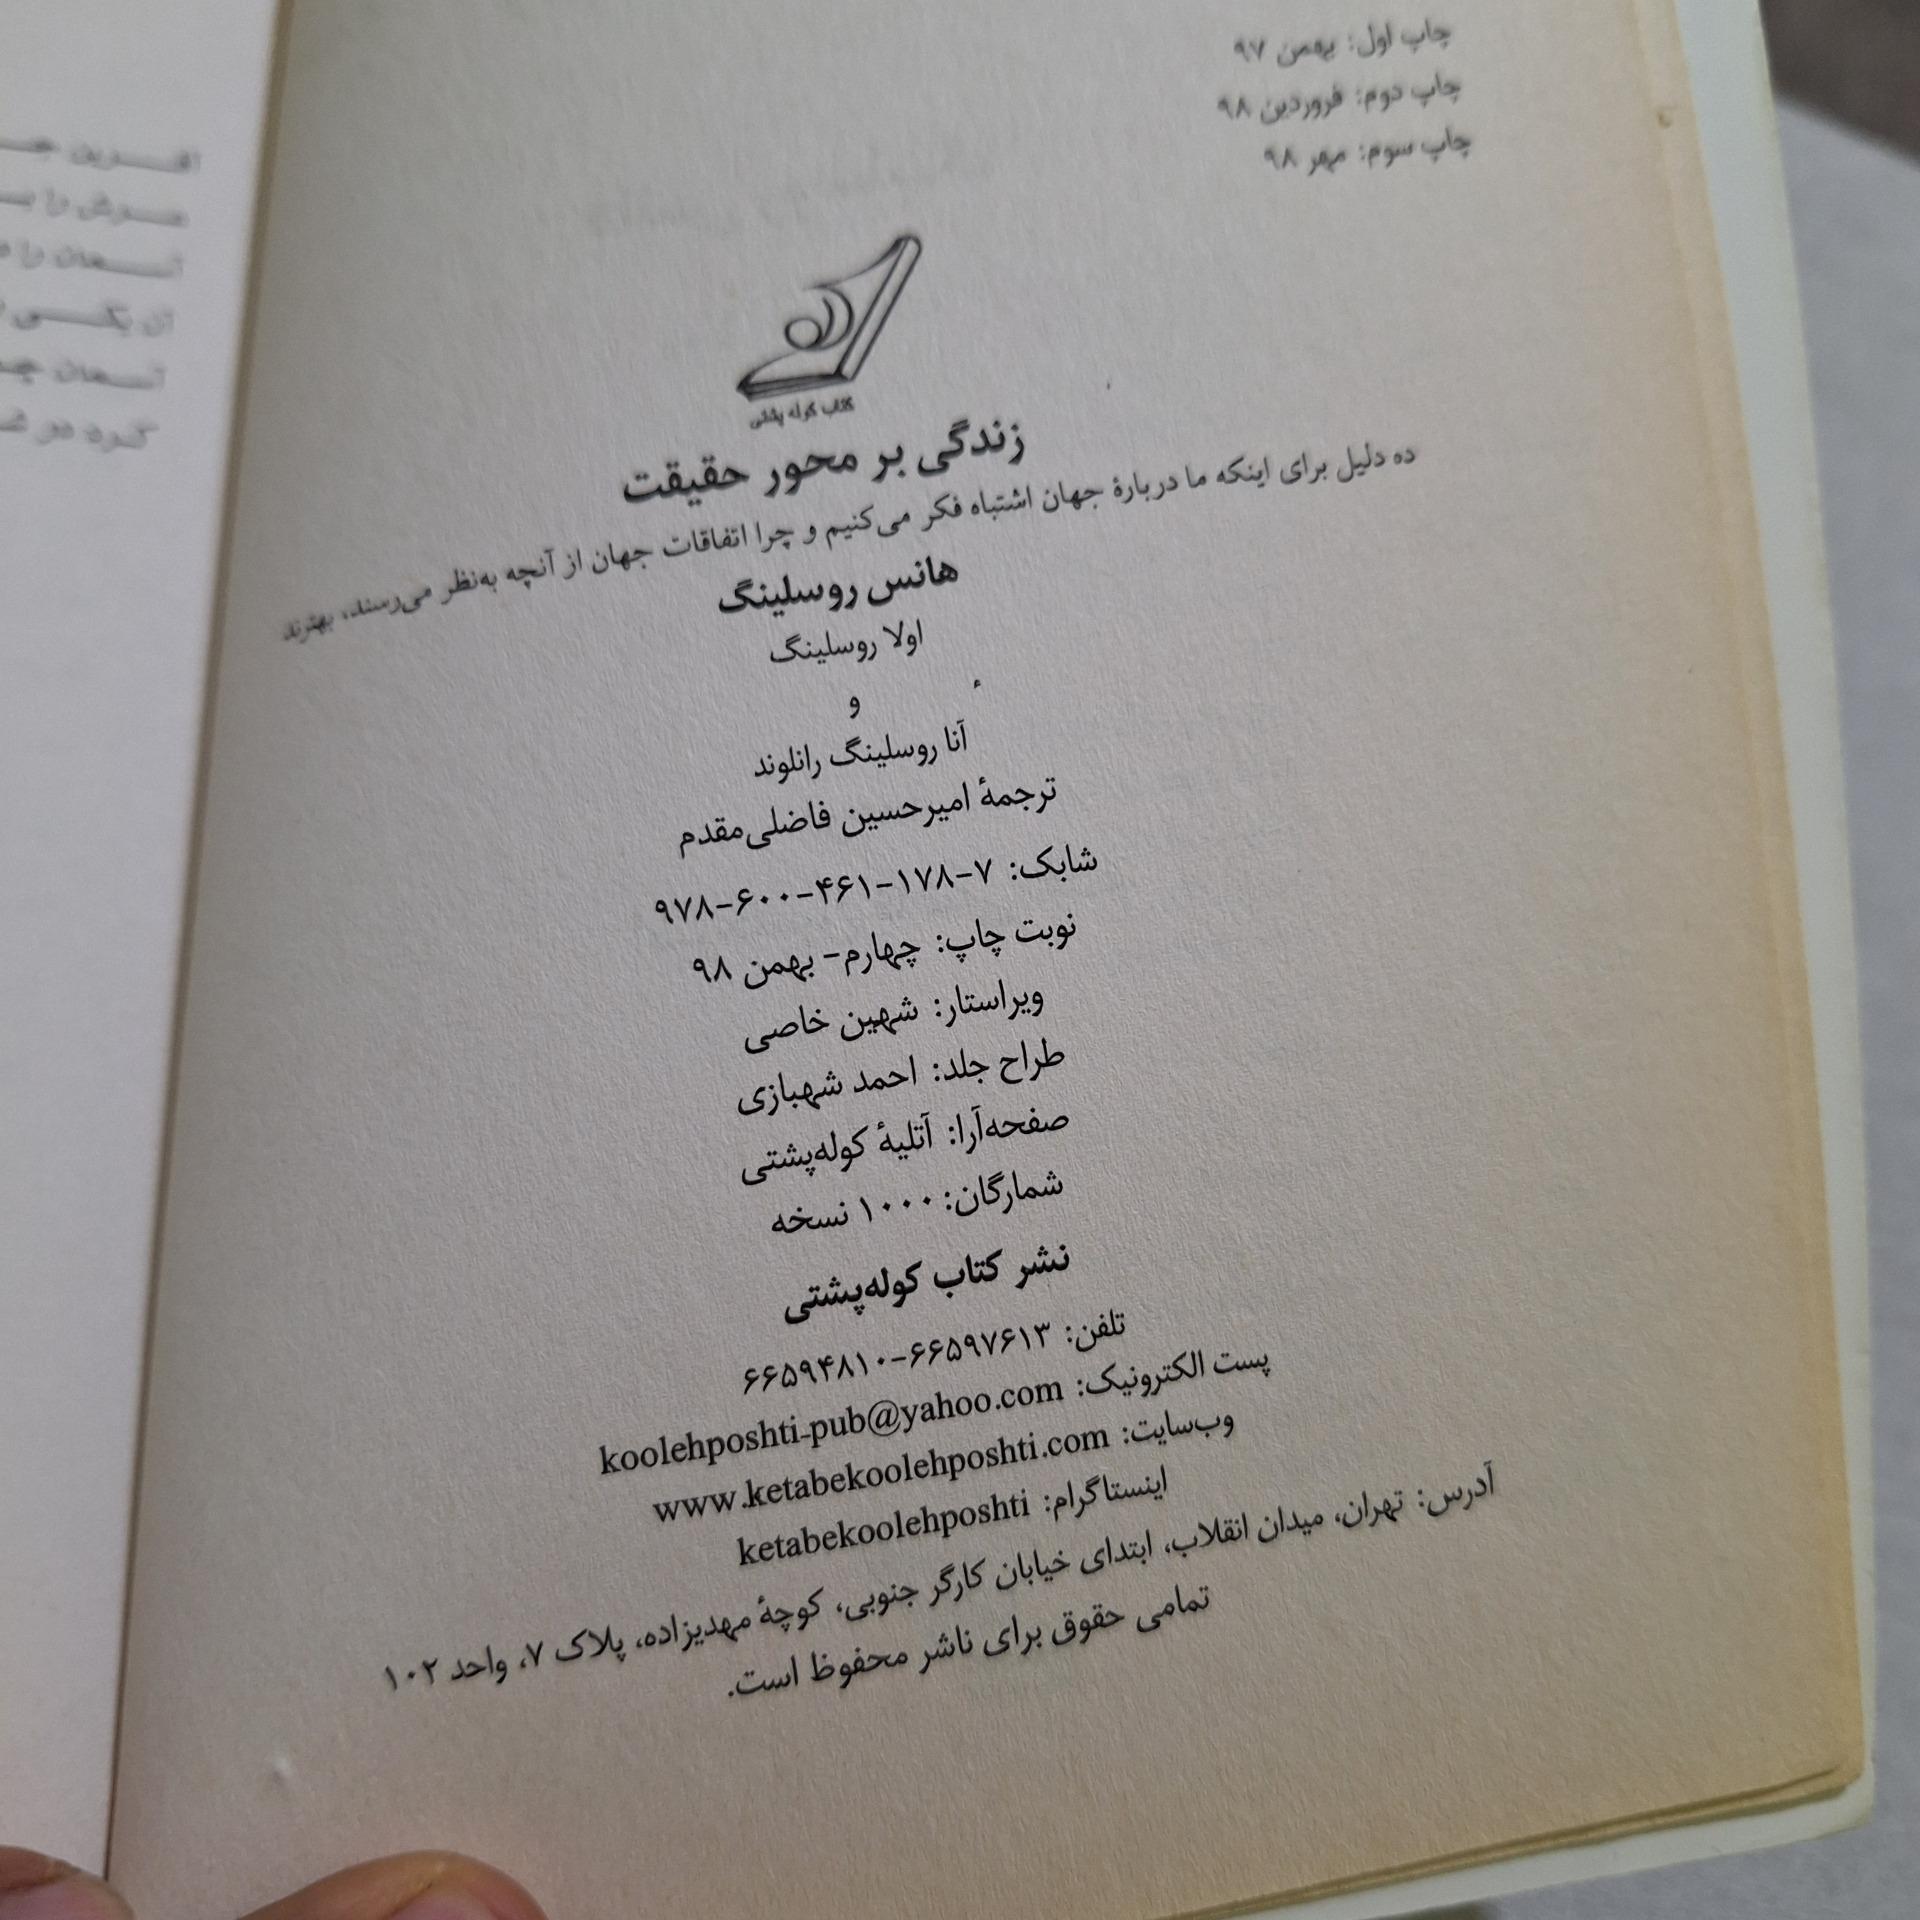 چاپ اول: بهمن ۹۷
چاپ دوم: فروردین ۹۸
چاپ سوم: مهر ۹۸
کتاب کوله پشتی
زندگی بر محور حقیقت
ده دلیل برای اینکه ما دربارهٔ جهان اشتباه فکر می‌کنیم و چرا اتفاقات جهان از آنچه به‌نظر می‌رسند، بهترند
هانس روسلینگ
اولا روسلینگ
و
آنا روسلینگ رانلوند
ترجمهٔ امیرحسین فاضلی‌مقدم
شابک: ۷-۱۷۸-۴۶۱-۶۰۰-۹۷۸
نوبت چاپ: چهارم- بهمن ۹۸
ویراستار: شهین خاصی
طراح جلد: احمد شهبازی
صفحه‌آرا: آتلیهٔ کوله‌پشتی
شمارگان: ۱۰۰۰ نسخه
نشر کتاب کوله‌پشتی
تلفن: ۶۶۵۹۷۶۱۳-۶۶۵۹۴۸۱۰
پست الکترونیک: koolehposhti-pub@yahoo.com
وب‌سایت: www.ketabekoolehposhti.com
اینستاگرام: ketabekoolehposhti
آدرس: تهران، میدان انقلاب، ابتدای خیابان کارگر جنوبی، کوچهٔ مهدیزاده، پلاک ۷، واحد ۱۰۲
تمامی حقوق برای ناشر محفوظ است.
را
آسمان را
آن یکی
آسمان